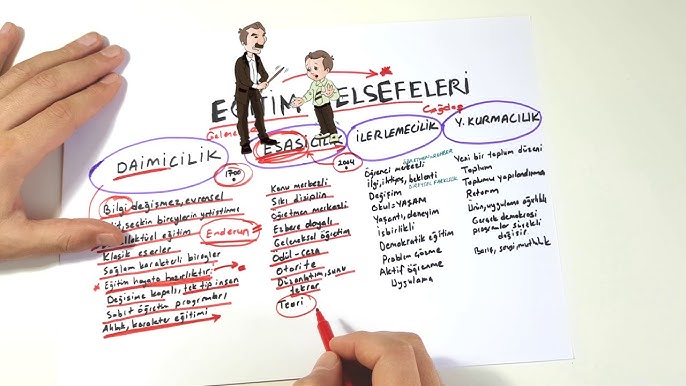 EĞİTİM FELSEFELERİ
Gelenek
Çağdaş
DAİMİCİLİK
1700
Bilgi değişmez, evrensel
Elit, seçkin bireylerin yetiştirilme
Entelektüel eğitim
Enderun
Klasik eserler
Sağlam karakterli bireyler
* Eğitim hayata hazırlıktır.
Değişime kapalı, tek tip insan
Sabit öğretim programları
Ahlak, karakter eğitimi
ESASİCİLİK
2004
Konu merkezli
Sıkı disiplin
Öğretmen merkezli
Ezbere dayalı
Geleneksel öğretim
Ödül-Ceza
Otorite
Düz anlatım, sunu
tekrar
Teori
İLERLEMECİLİK
Öğrenci merkezli
ilgi, ihtiyaç, beklenti
Değişim
Okul=YAŞAM
Yaşantı, deneyim
İşbirlikli
Demokratik eğitim
Problem Çözme
Aktif öğrenme
Uygulama
Y. KURMACILIK
Yeni bir toplum düzeni
Toplum
Toplumu yapılandırma
Reform
Ürün, uygulama ağırlıklı
Gerçek demokrasi
programlar sürekli
değişir
Barış, sevgi, mutluluk